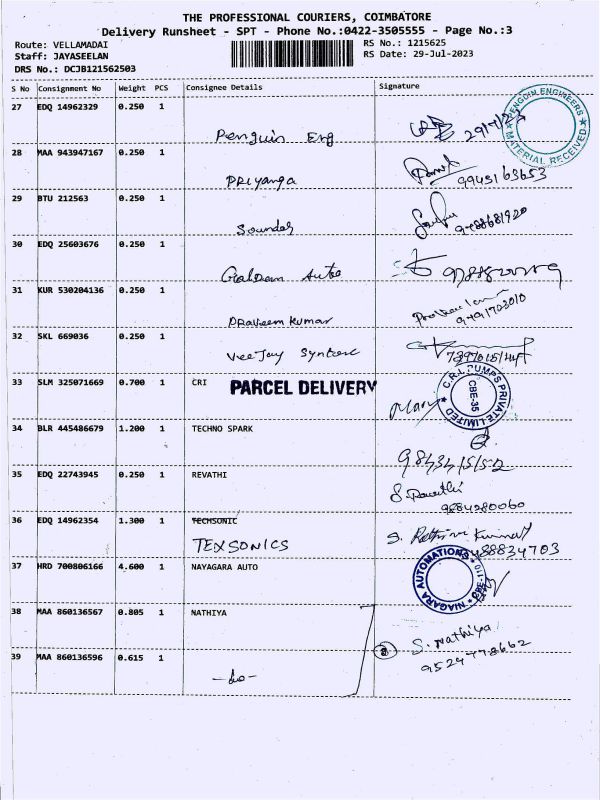 THE PROFESSIONAL COURIERS, COIMBATORE
Delivery Runsheet - SPT - Phone No.:0422-3505555 - Page No.:3
Route: VELLAMADAI
RS No.: 1215625
Staff: JAYASEELAN
RS Date: 29-Jul-2023
DRS No.: DCJB121562503
S No Consignment No Weight PCS Consignee Details Signature
27 EDQ 14962329 0.250 1
Penguin Eng
PENGUIN ENGINEERS
MATERIAL RECEIVED
28 MAA 943947167 0.250 1
Priyanga
29 BTU 212563 0.250 1
Soundar
30 EDQ 25603676 0.250 1
Auto
31 KUR 530204136 0.250 1
Praveen kumar
32 SKL 669036 0.250 1
VeeJay
33 SLM 325071669 0.700 1 CRI PARCEL DELIVERY
C.R.I. PUMPS PRIVATE LIMITED
CBE-35
34 BLR 445486679 1.200 1 TECHNO SPARK
35 EDQ 22743945 0.250 1 REVATHI
9884280060
36 EDQ 14962354 1.300 1 TECHSONIC
TEXSONICS
37 HRD 700806166 4.600 1 NAYAGARA AUTO
NIAGARA AUTOMATIONS
38 MAA 860136567 0.805 1 NATHIYA
S. Nathiya
39 MAA 860136596 0.615 1
-do-